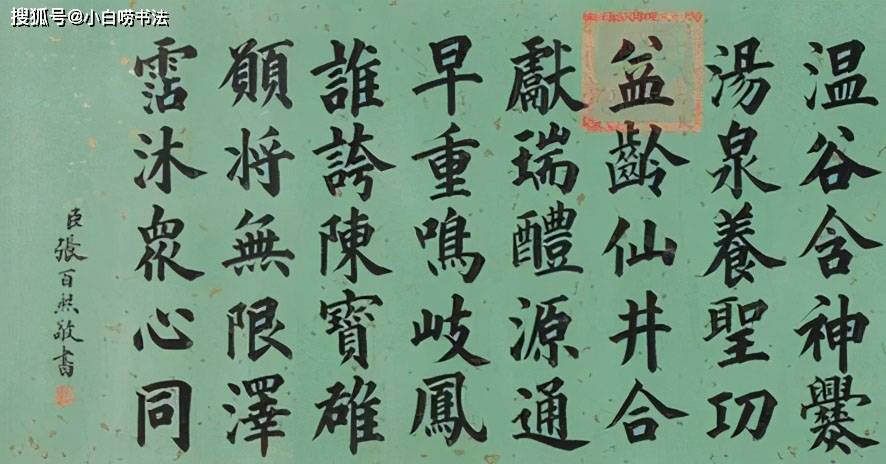 搜狐号@小白唠书法
温谷含神爨
湯泉養聖功
益齡仙井合
獻瑞醴源通
早重鳴岐鳳
誰誇陳寶雄
願将無限澤
霑沐眾心同
臣張百熙敬書